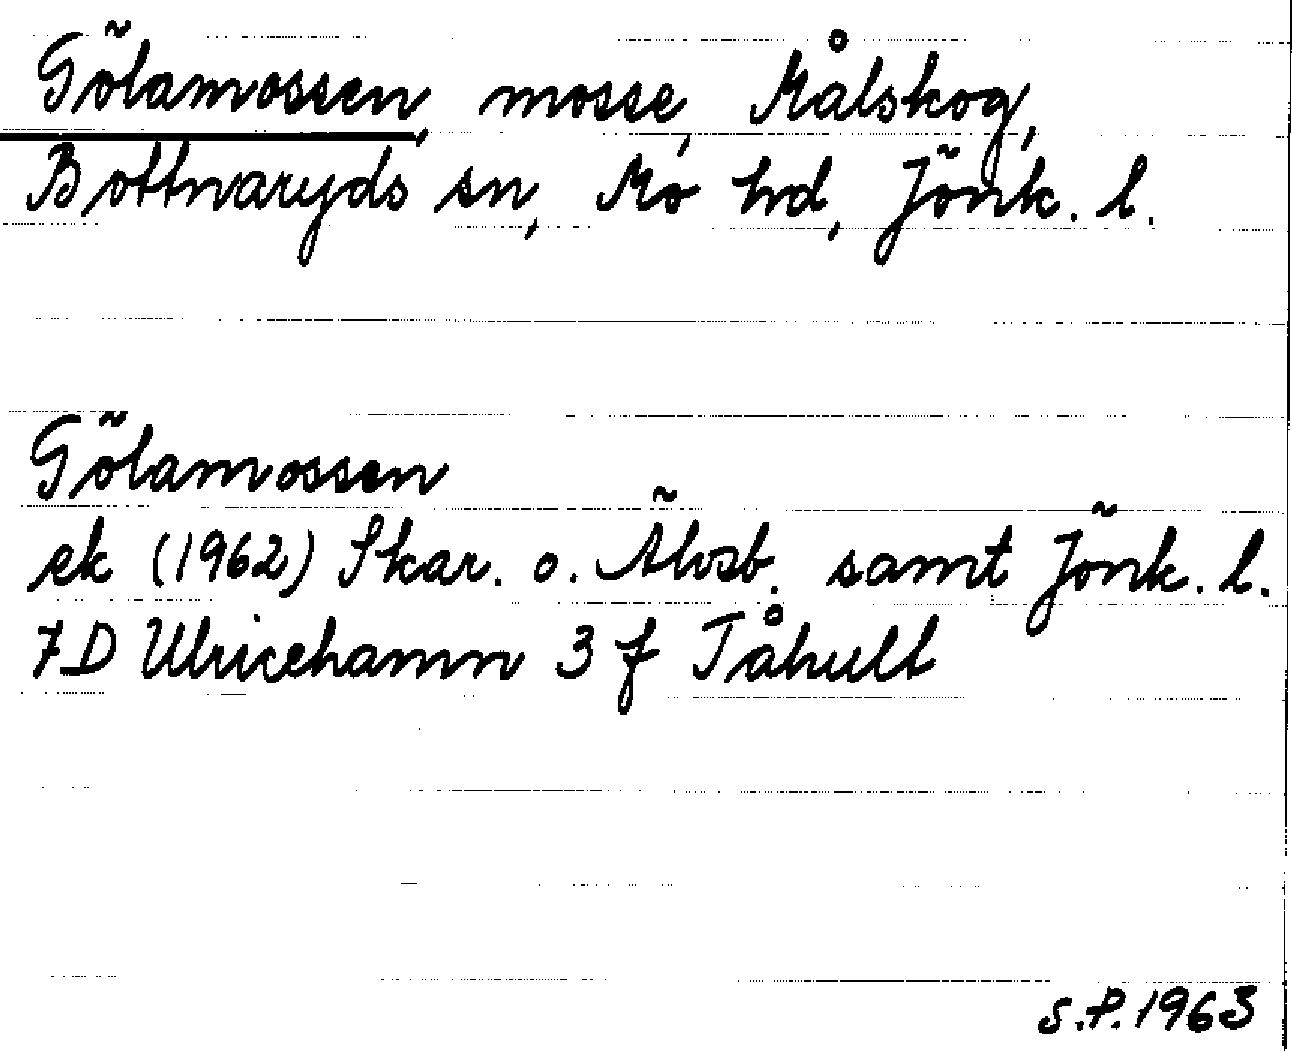 Gölamossen, mosse, Målskog,
Bottnaryds sn, Mo hd, Jönk. l.
Gölamossen
ek (1962) Skar. o. Älvsb. samt Jönk. l.
7D Ulricehamn 3 f Tåhult
S.P. 1963